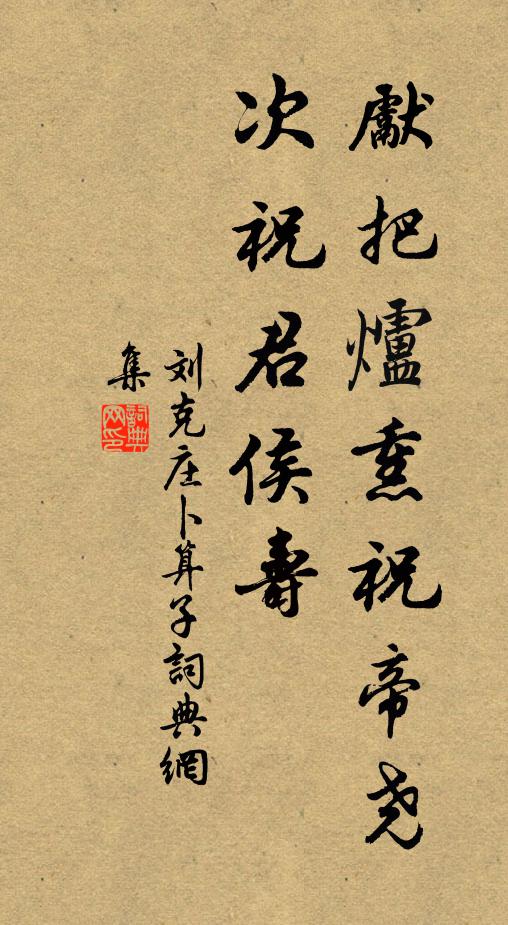 獻把爐熏祝帝尧
次祝君侯壽
刘克庄卜算子詞典網
集
詞典网印